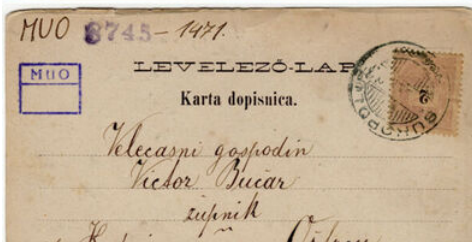 MUO 8745-1471.
MUO
LEVELEZŐ-LAP
Karta dopisnica.
2
Velecasni gospodin
Victor Bučar
župnik